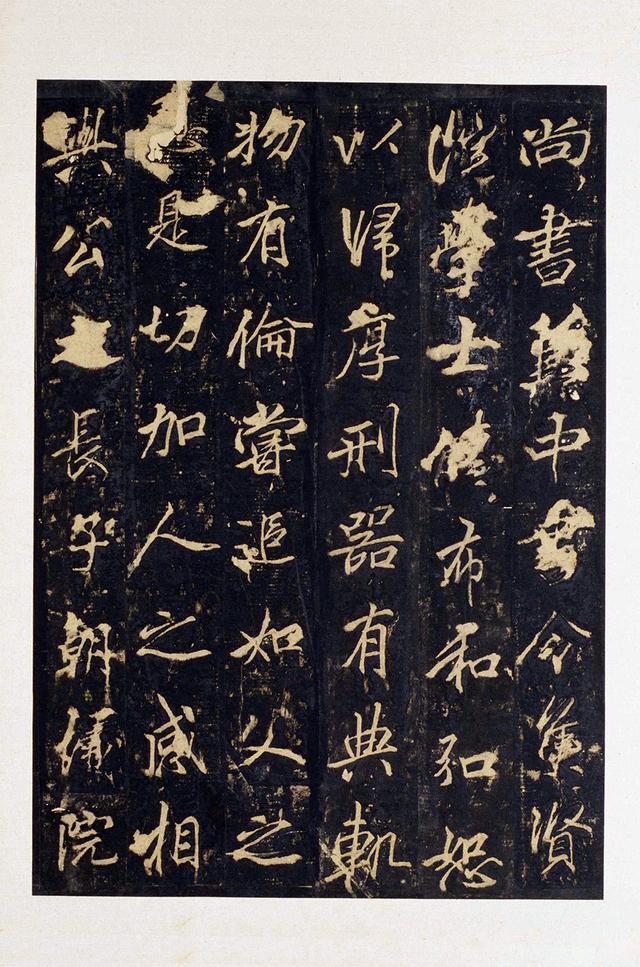 尚書兼中書令集賢
學士布和弘恕
以歸厚刑器有典軌
物有倫嘗追如父之
是切加人之感相
與公長子朝儀院